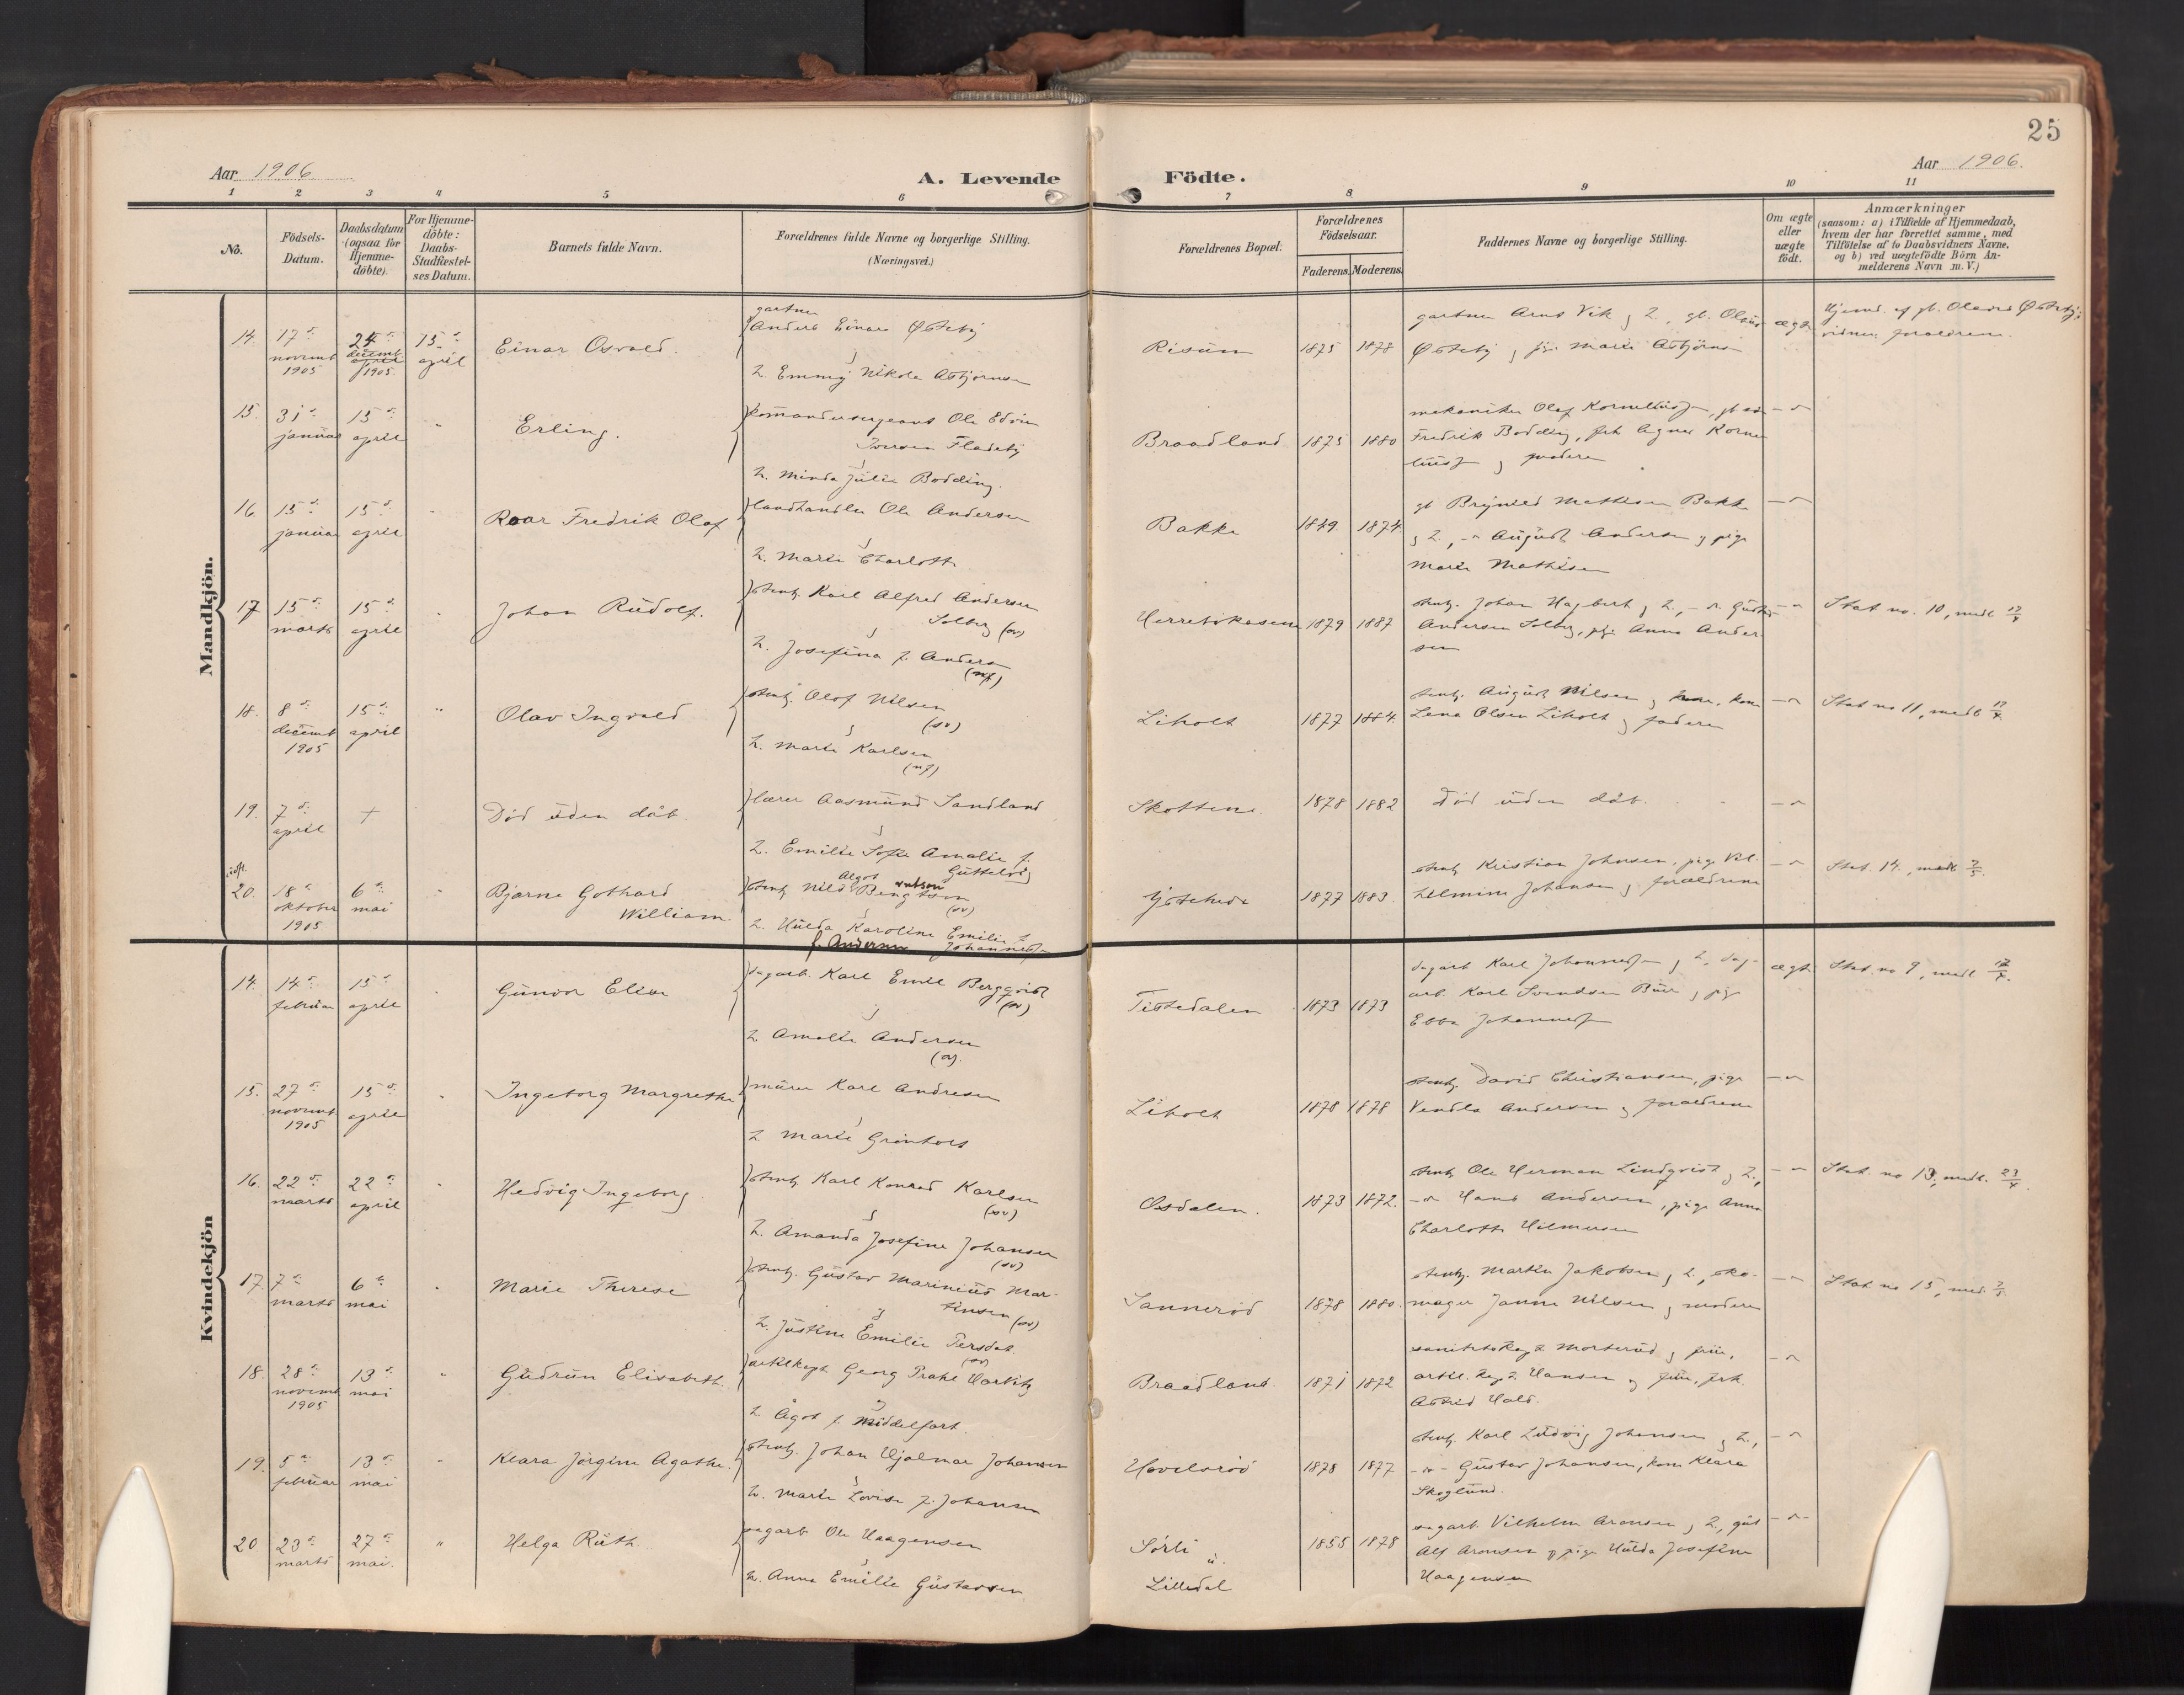 25
Aar 1906
A. Levende Födte.
Aar 1906.
1 2 3 4 5 6 7 8 9 10 11
No.
Födsels-Datum.
Daabsdatum (ogsaa for Hjemme-döbte).
For Hjemme-döbte: Daabs-Stadfæstel-ses Datum.
Barnets fulde Navn.
Forældrenes fulde Navne og borgerlige Stilling.
(Næringsvei.)
Forældrenes Bopæl.
Forældrenes Födselsaar.
Faderens. Moderens.
Faddernes Navne og borgerlige Stilling.
Om ægte eller uægte födt.
Anmærkninger
(saasom: a) i Tilfælde af Hjemmedaab, hvem der har forrettet samme, med Tilföielse af to Daabsvidners Navne, og b) ved uægtefödte Börn Anmelderens Navn m. V.)
Mandkjön.
14. 17de novemb 1905
24de decemb 1905.
15de april
Einar Osvald.
gartner Anders Einar Østeby
og
h. Emmy Nikola Asbjørnsen
Risum 1875 1878
gartner Arnt Vik og h., gb. Olaus
Østeby, pige Marie Asbjørns
ægte
Hjemd. af gb. Olaves Østeby;
vidner: forældrene.
15. 31te januar
15de april
"
Erling.
kommandersergeant Ole Edvin
Iversen Fladeby
og
h. Minda Julie Bodding.
Braadland 1875 1880
mekaniker Olaf Korneliuss,
Fredrik Bodding, frk Agnes Korne
liuss og moderen
16. 15de januar
15de april
Roar Fredrik Olaf
landhandler Ole Andersen
og
h. Marie Charlotte
Bakke 1849. 1874
gb Brynild Mathisen Bakke
og h., -"- August Andersen og pige
Marie Mathisen
17 15de marts
15de april
Johan Rudolf.
stenh. Karl Alfred Andersen
Solberg (sv)
og
h. Josefina f. Andersen
(mf)
Herrebøkasene 1879 1887
stenh. Johan Hagbert og h., -"- Gustav
Andersen Solberg, pige Anna Ander
sen
Stat. no. 10, medt 17/4
18. 8de decemb 1905
15de april
"
Olav Ingvald
stenh. Olof Nilsen
(sv)
og
h. Marie Karlsen
(mf)
Liholt 1877 1884.
stenh. August Nilsen og kone, kone
Lena Olsen Liholt og faderen
Stat no 11, medt 17/4
19. 7de april
+
Død uden dåb.
lærer Aasmund Sandland
og
h. Emilie Sofie Amalie f.
Guttelvig
Skottene. 1878 1882
Død uden dåb.
20. 18de oktober 1905
6te mai
Bjarne Gothard
William.
stenh Nils Algot Bengtson
(sv)
og
h. Hulda Karoline Emilie f.
f. Andersen Johannes
1877 1883.
stenh Kristian Johnsen, pige Vil
helmine Johansen og forældrene
Stat. 14., medt 7/5.
Kvindekjön
14. 14de februar
15de april
Gunvor Elise
dagarb. Karl Emil Bergqvist
(sv)
og
h. Amalie Andersen
(sv).
Tistedalen 1873 1873
dagarb Karl Johannes og h, dag-
arb. Karl Svendsen Buer, pige
Ebba Johannes
ægte
Stat. no 9, medt 17/4.
15. 27de novemb 1905
15de april
Ingeborg Margrethe
murer Karl Andresen
og
h Marie Grønholt
Liholt 1878 1878
stenh. David Christiansen, pige
Vendla Andersen og forældrene
16. 22de marts
22de april
Hedvig Ingeborg
stenh Karl Konrad Karlsen
(sv)
og
h. Amanda Josefine Johansen
(sv)
Øsdalen. 1873 1872.
stenh Ole Herman Lindqvist og h.,
-"- Hans Andersen, pige Anna
Charlotte Hilmersen
Stat. no 13, medt. 23/4.
17. 7de marts
6te mai
Marie Therese
stenh. Gustav Marinius Mar-
tinsen (sv)
og
h. Justine Emilie Persdat.
(sv)
Sannerød 1878 1880.
stenh. Martin Jakobsen og h., sko-
mager Janne Nilsen og moderen
Stat. no 15, med. 7/5.
18. 28de novemb 1905
13de mai
"
Gudrun Elisabeth.
artilkapt Georg Prahl Harbitz
og
h. Ågot f. Middelfart.
Braadland. 1871 1872
sanitetskapt Mosterud og frue,
artil. kapt Hansen og frue, frk.
Astrid Hald.
19. 5te februar
13de mai
Klara Jørgine Agathe.
stenh. Johan Hjalmar Johansen
og
h. Marie Lovise f. Johansen
1878 1877
stenh. Karl Ludvig Johansen og h.,
-"- Gustav Johansen, kone Klara
Skoglund.
20 23de marts
27de mai.
"
Helga Ruth
sagarb Ole Haagensen
og
h. Anna Emilie Gustavsen.
Sørli u. Lilledal
1855 1878
sagarb. Vilhelm Aronsen og h., gut
Alf Aronsen og pige Hulda Josefine
Haagensen